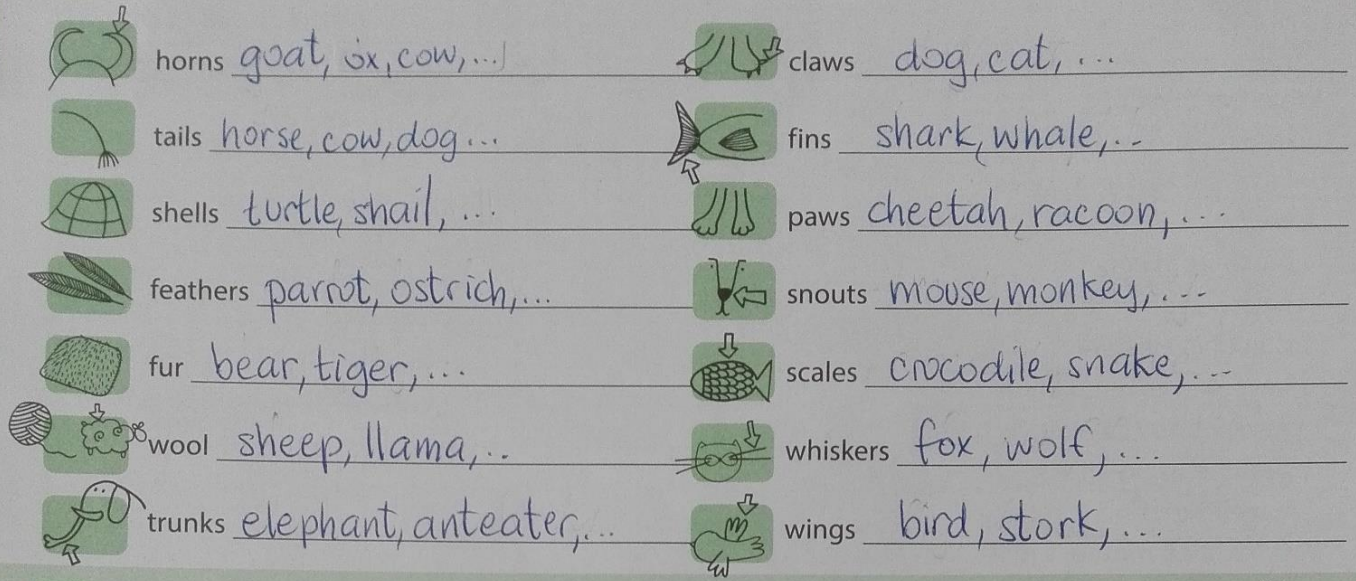 horns goat, ox, cow, ...
tails horse, cow, dog ...
shells turtle, shail, ...
feathers parrot, ostrich, ...
fur bear, tiger, ...
wool sheep, llama, ..
trunks elephant, anteater, ...
claws dog, cat, ...
fins shark, whale, ...
paws cheetah, racoon, ...
snouts mouse, monkey, ...
scales crocodile, snake, ...
whiskers fox, wolf, ...
wings bird, stork, ...